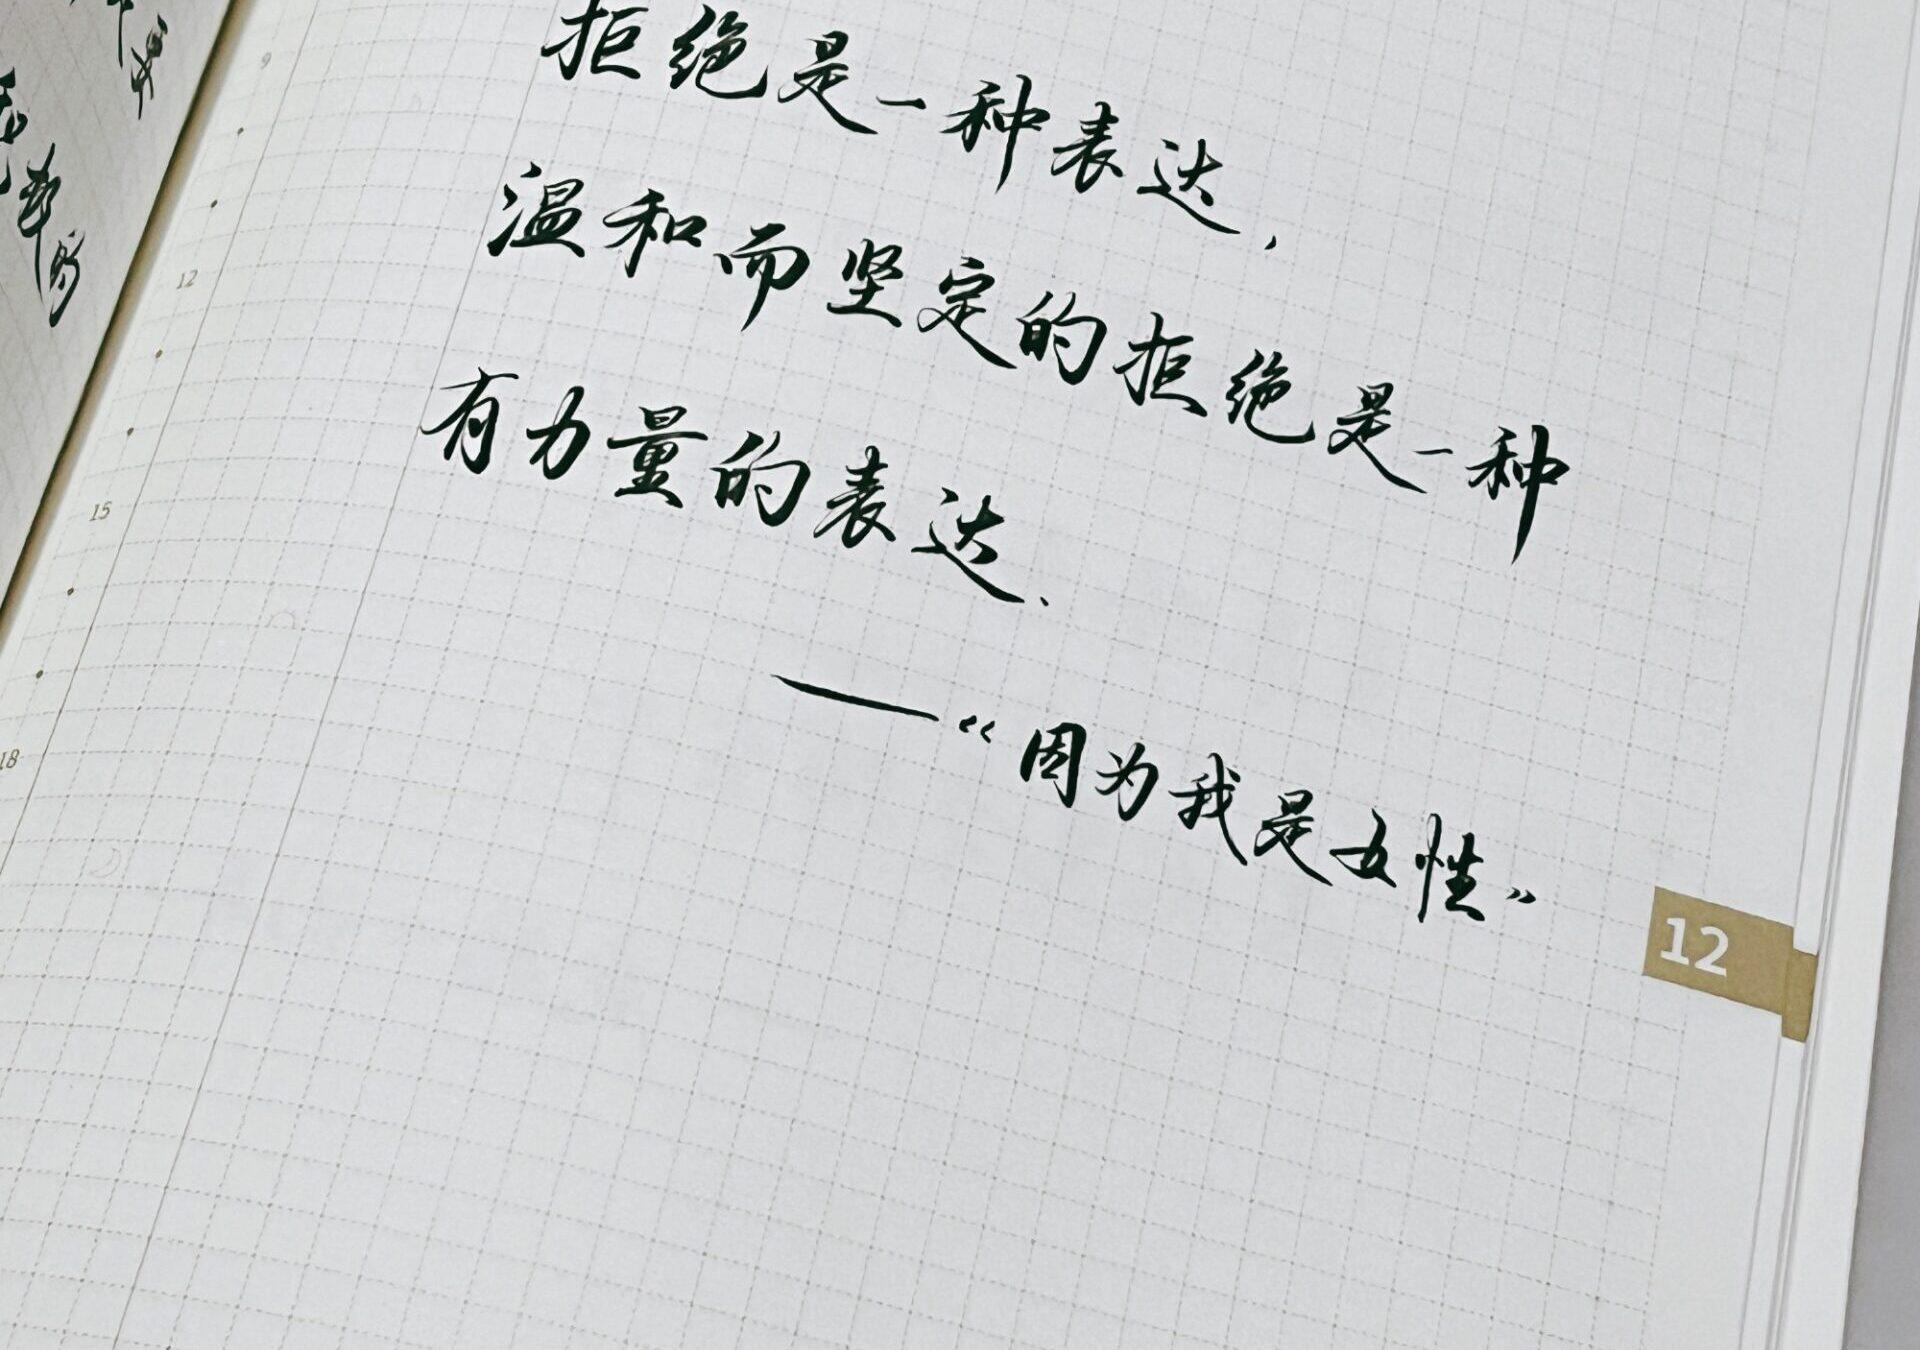 9
拒绝是一种表达，
12
温和而坚定的拒绝是一种
有力量的表达、
15
——《因为我是女性》
18
12